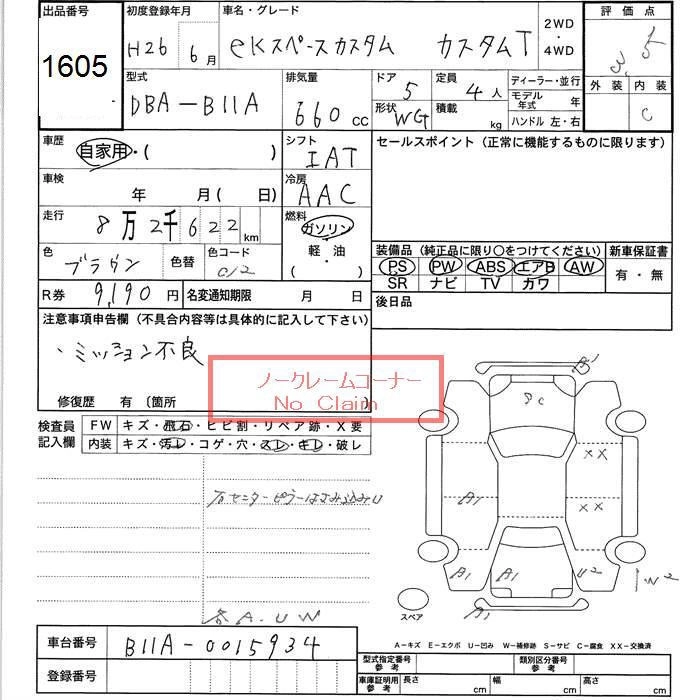 出品番号 初度登録年月 車名・グレード 2WD・4WD 評価点
1605
H26 6月 eKスペースカスタム カスタムT 3.5
型式 排気量 ドア 定員 ディーラー・並行 外装 内装
DBA-B11A 660cc 5 4人 モデル年式 年
形状 WG 積載 kg ハンドル 左・右 C
車歴 自家用・( ) シフト IAT セールスポイント(正常に機能するものに限ります)
車検 年 月( 日) 冷房 AAC
走行 8万2千622km 燃料 ガソリン
軽・油
( )
色 ブラウン 色替 色コード C12
装備品(純正品に限り〇をつけてください) 新車保証書
PS PW ABS エアB AW 有・無
SR ナビ TV カワ
R券 9,190円 名変通知期限 月 日 後日品
注意事項申告欄(不具合内容等は具体的に記入して下さい)
・ミッション不良
ノークレームコーナー
No Claim
修復歴 有〔箇所
検査員記入欄 FW キズ・飛石・ヒビ割・リペア跡・X要
内装 キズ・汚レ・コゲ・穴・スレ・キレ・破レ
右センターピラーはさみ込みU
各A.UW
A1
XX
XX
A1
A1
A1
U2
W2
スペア
A1
A-キズ E-エクボ U-凹み W-補修跡 S-サビ C-腐食 XX-交換済
車台番号 B11A-0015934
登録番号
型式指定番号参考 類別区分番号参考
車庫証明用参考 長さ cm 幅 cm 高さ cm